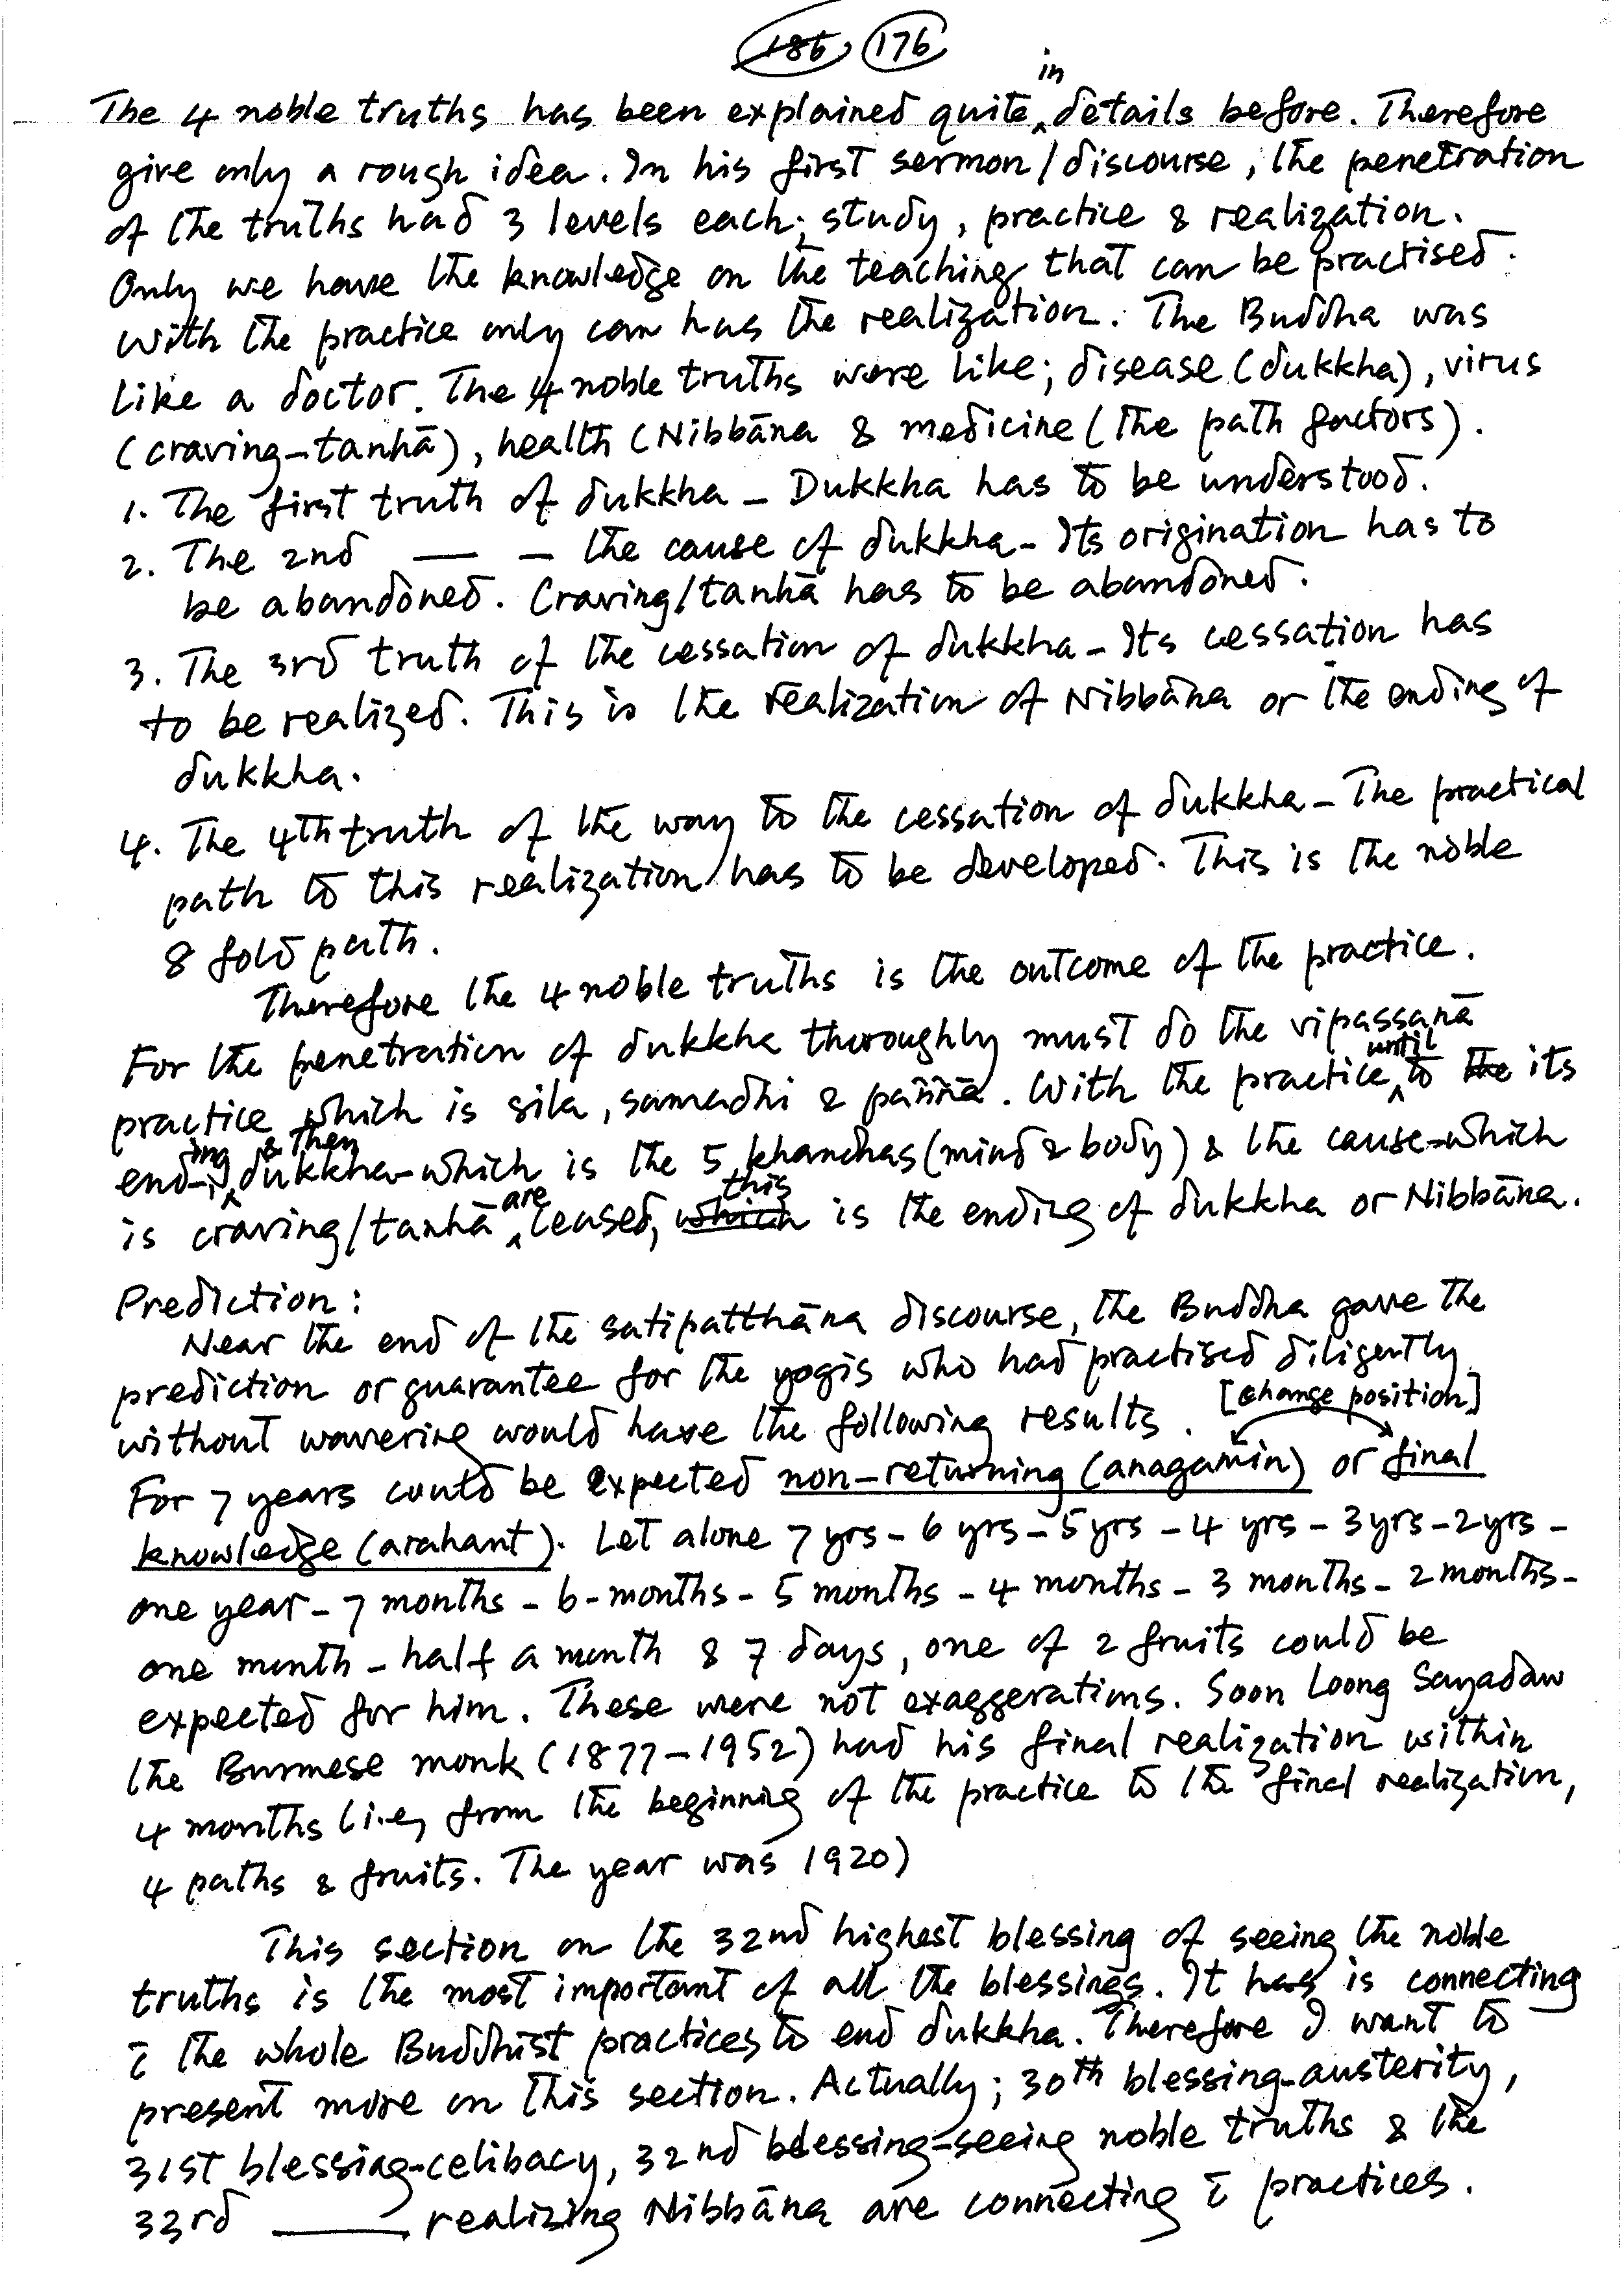 186 176
The 4 noble truths has been explained quite in details before. Therefore
give only a rough idea. In his first sermon/discourse, the penetration
of the truths had 3 levels each; study, practice & realization.
Only we have the knowledge on the teaching, that can be practised.
With the practice only can has the realization. The Buddha was
like a doctor. The 4 noble truths were like; disease (dukkha), virus
(craving-tanhā), health (Nibbāna & medicine (the path factors).
1. The first truth of dukkha – Dukkha has to be understood.
2. The 2nd —— – the cause of dukkha – Its origination has to
be abandoned. Craving/tanhā has to be abandoned.
3. The 3rd truth of the cessation of dukkha – Its cessation has
to be realized. This is the realization of Nibbāna or the ending of
dukkha.
4. The 4th truth of the way to the cessation of dukkha – The practical
path to this realization has to be developed. This is the noble
8 fold path.
Therefore the 4 noble truths is the outcome of the practice.
For the penetration of dukkha thoroughly must do the vipassanā
practice which is sila, samadhi & paññā. With the practice until to the its
ending & then dukkha-which is the 5 khandhas (mind & body) & the cause-which
is craving/tanhā are ceased, which this is the ending of dukkha or Nibbāna.
Prediction:
Near the end of the satipatthāna discourse, the Buddha gave the
prediction or guarantee for the yogis who had practised diligently
without wavering would have the following results. [change position]
For 7 years could be expected non-returning (anagamin) or final
knowledge (arahant). Let alone 7 yrs – 6 yrs – 5 yrs – 4 yrs – 3 yrs – 2 yrs –
one year – 7 months – 6-months – 5 months – 4 months – 3 months – 2 months –
one month – half a month & 7 days, one of 2 fruits could be
expected for him. These were not exaggerations. Soon Loong Sayadaw
the Burmese monk (1877–1952) had his final realization within
4 months (i.e, from the beginning of the practice to the final realization,
4 paths & fruits. The year was 1920)
This section on the 32nd highest blessing of seeing the noble
truths is the most important of all the blessings. It has is connecting
c̄ the whole Buddhist practices to end dukkha. Therefore I want to
present more on this section. Actually; 30th blessing-austerity,
31st blessing-celibacy, 32nd blessing-seeing noble truths & the
33rd ——— realizing Nibbāna are connecting c̄ practices.